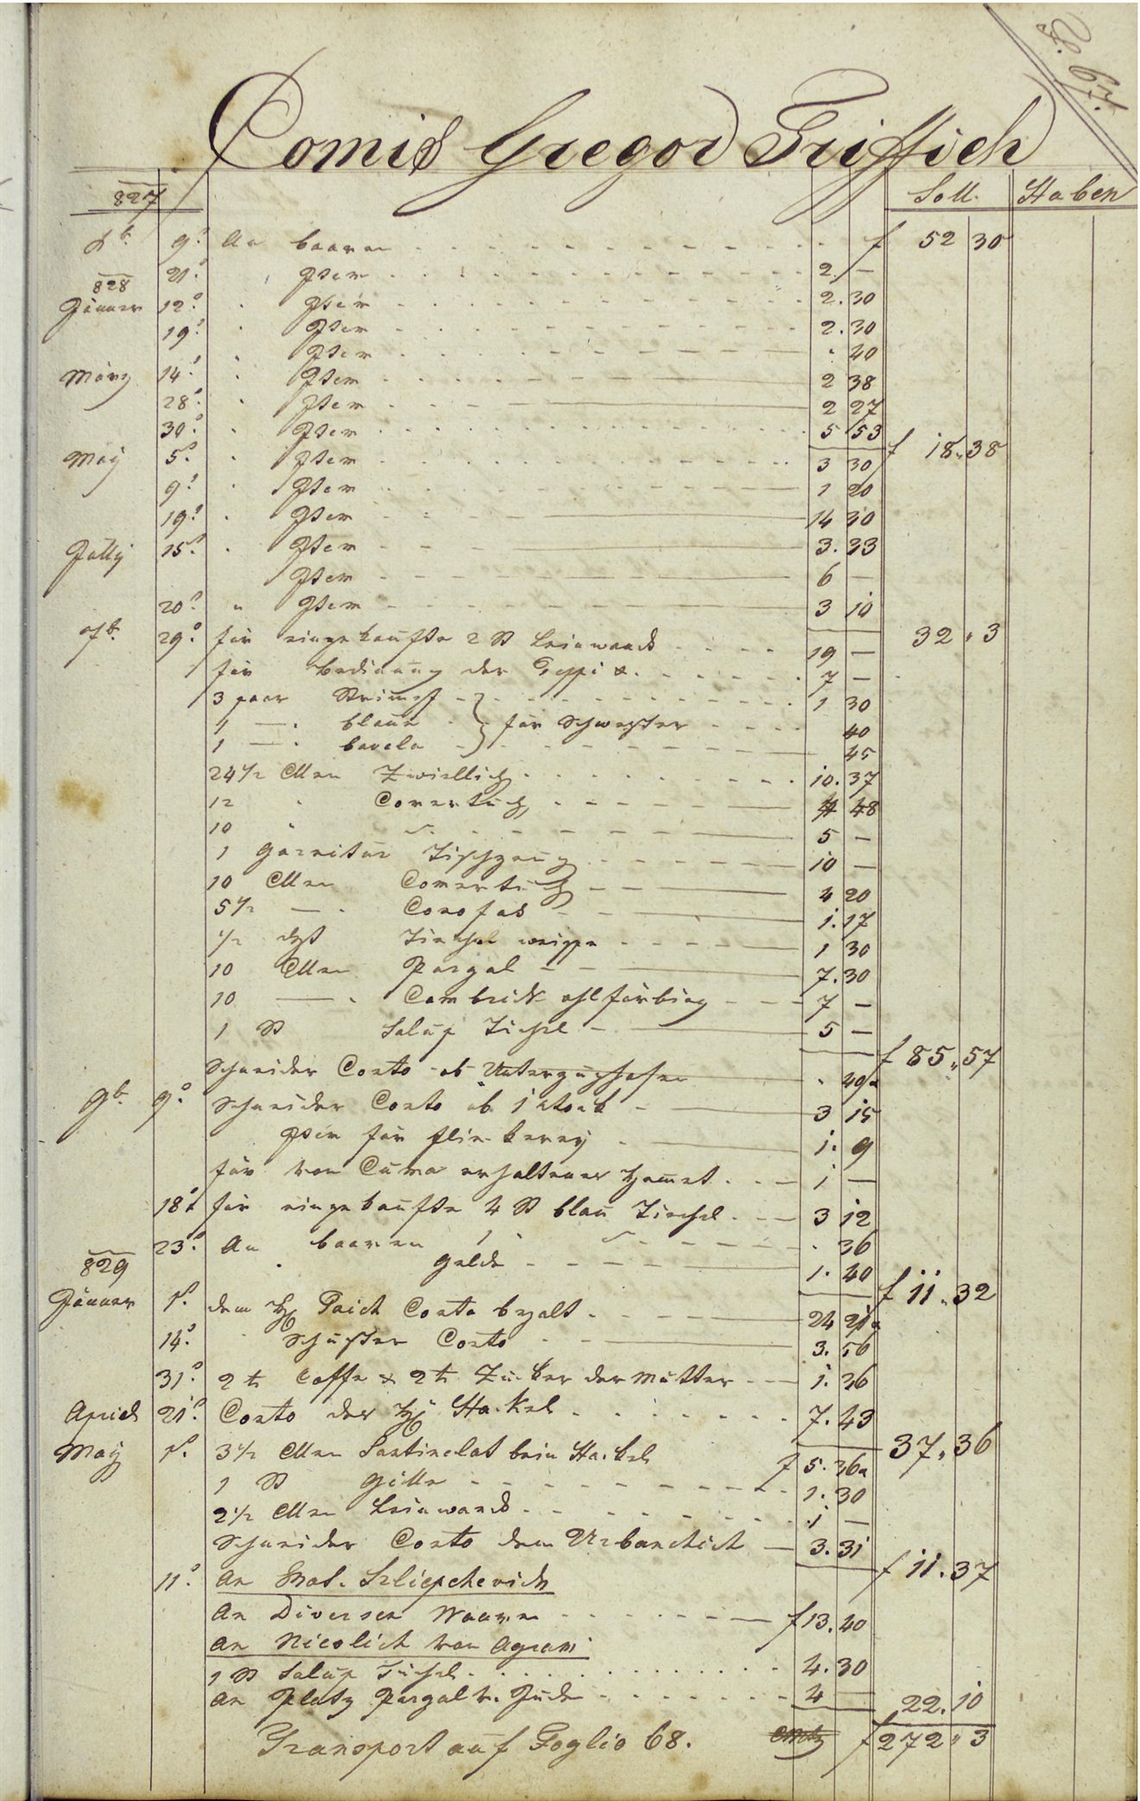 F. 67.
Comis Gregor Triffich
827 Soll. Haben
Xb. 9. An baaren f 52 30
21. Item 2. —
828
Jänner 12. Item 2. 30
19. Item 2. 30
Item . 40
März 14. Item 2 38
28. Item 2 27
30. Item 5 53
f 18. 38
May 5. Item 3 30
9. Item 1 20
19. Item 14 30
Jully 15. Item 3. 33
Item 6 —
20. " Item 3 10
32. 3
7b. 29. für eingekaufte 2 St Leinwand 19 —
für Bedienung der 7 —
3 paar Strümpf 1 30
1 — . blaue } für Schwester 40
1 — . 45
24 1/2 Ellen Zwillich 10. 37
12 " 4 48
10 " 5 —
1 Garnitur Tischzeug 10 —
10 Ellen 4 20
5 1/2 — . 1. 17
1/2 Tischel weisse 1 30
10 Ellen Pargal 7. 30
10 — . Cambrick ohlfärbig 7 —
1 St Salup Tichel 5 —
f 85. 57
Schneider Conto
9b. 9. Schneider Conto 3 15
Item für 1. 9
für von erhaltener 1 —
18. für eingekaufte 4 St blau Tischel 3 12
23. An baaren . 36
829 " Gelde 1. 40
f 11. 32
Jänner 1. dem Conto bezalt 24
14. " Schuster Conto 3.
31. 2 ℔ Caffe & 2 ℔ Zucker der Mutter 1. 36
April 21. Conto der Hackel 7. 43
37. 36
May 1. 3 1/2 Ellen beim Hackel f 5. 36
1 St Gille 1. 30
2 1/2 Ellen Leinwand 1 —
Schneider Conto dem Urbanchich 3. 31
f 11. 37
11. An
An Diversen Waaren f 13. 40
An Nicolich von Agram
1 St Salup Tichel 4. 30
An Platz Pargal v. Jude 4 —
22. 10
Transport auf Foglio 68. f 272. 3